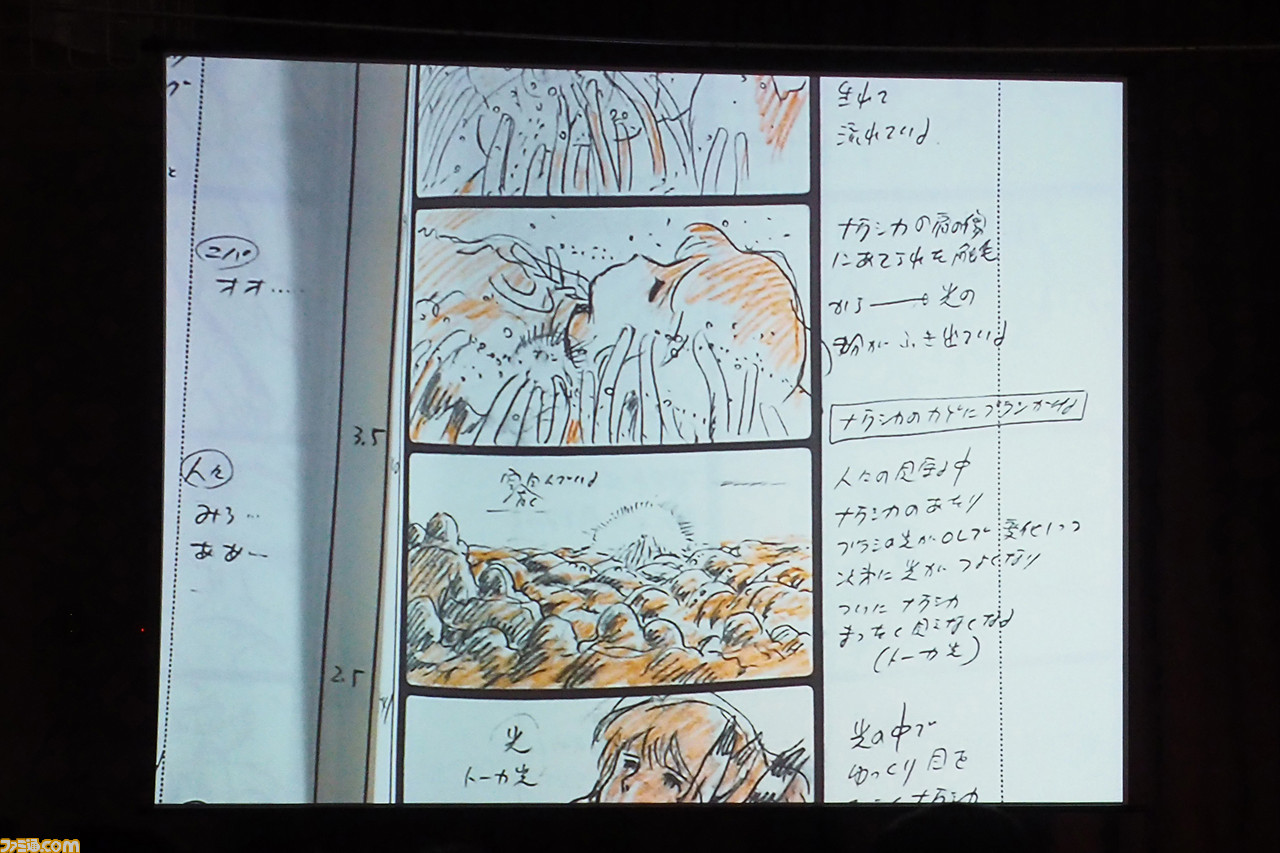 と
コハル
オオ……
人々
みろ…
ああ…
3.5
2.5
生れて
流れている
ナウシカの肩の傷
にあてられた
から――光の
粉がふき出ている
ナウシカの
人々の見守る中
ナウシカのあたり
光がOLで変化しつつ
次第に光がつよくなり
ついにナウシカ
まったく見えなくなる
(トーカ光)
光
トーカ光
光の中で
ゆっくり目を
ナウシカ
ファミ通.com